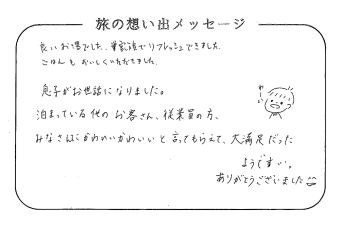 旅の想い出メッセージ
良いお湯でした。家族でリフレッシュできました。
ごはんもおいしくいただきました。
息子がお世話になりました。
わーい
泊まっている他のお客さん、従業員の方、
みなさんにかわいいかわいいと言ってもらえて、大満足だった
ようです。
ありがとうございました